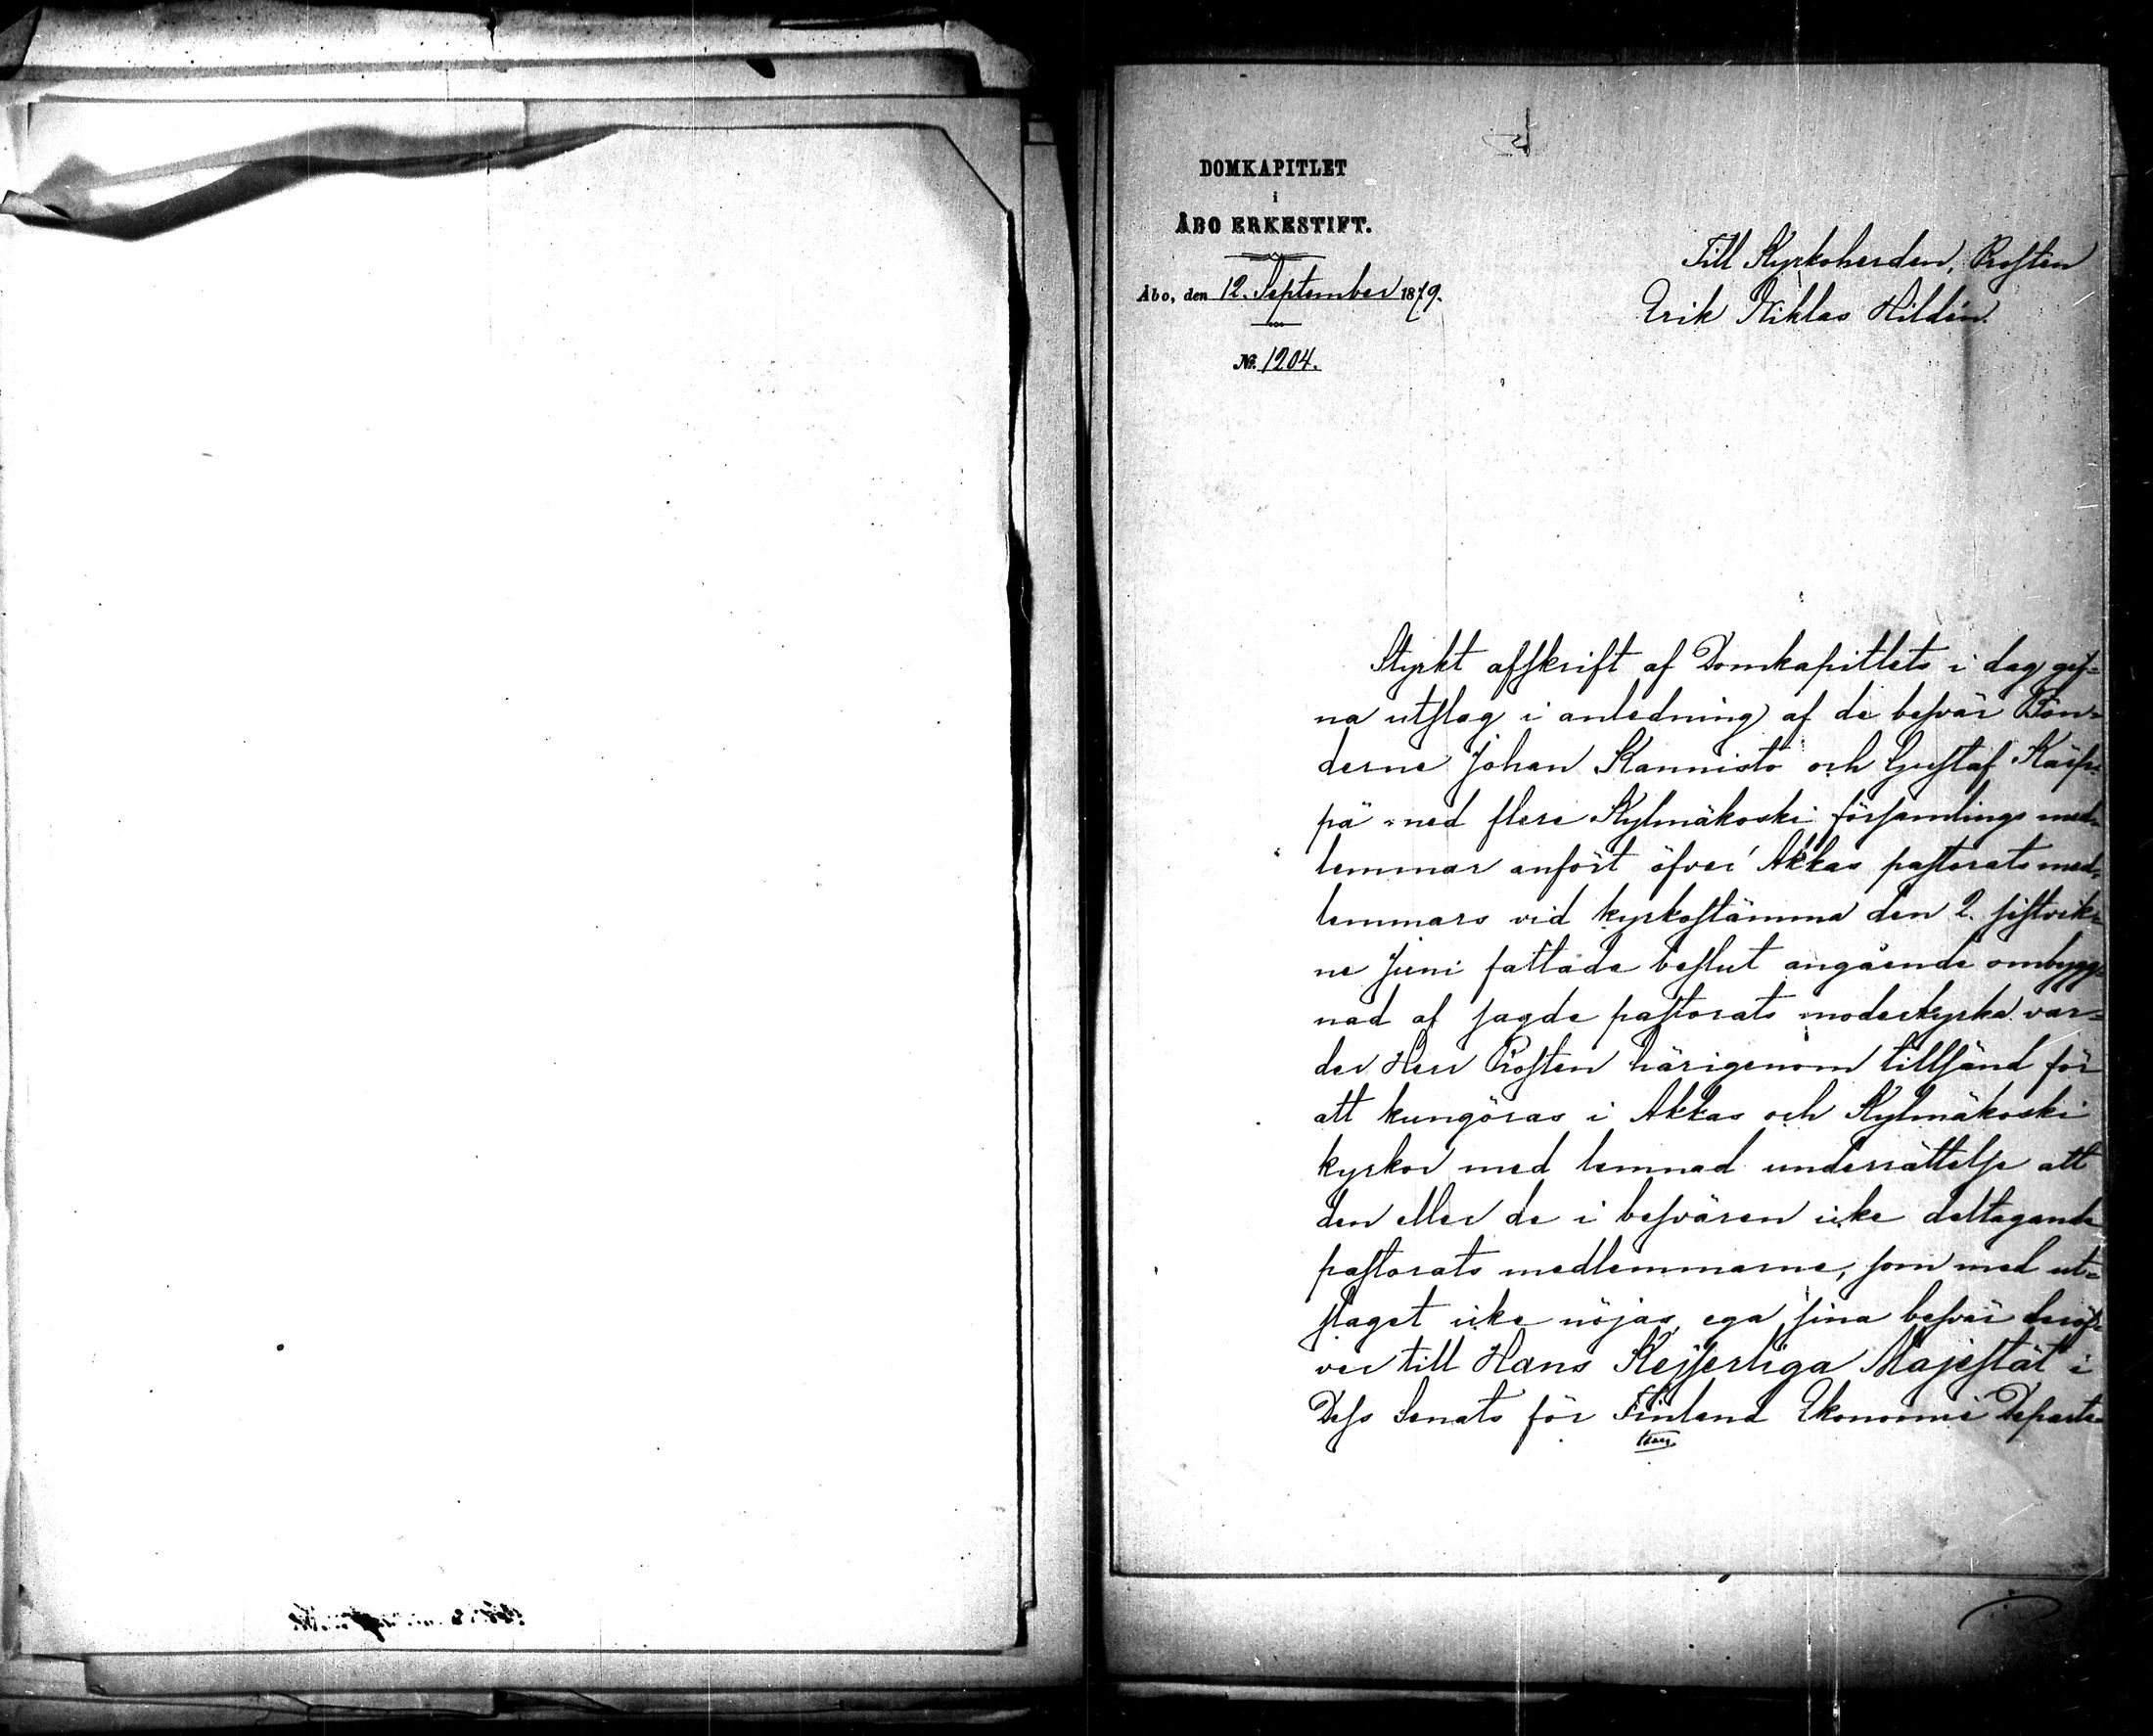 DOMKAPITLET
i
ÅBO ERKESTIFT.
Åbo, den 12. September 1879.
No. 1204.
Till Kyrkoherden, Prosten
Erik Niklas Hildén.
Styrkt afskrift af Domkapitlets i dag gif-
na utslag i anledning af de besvär Bön-
derne Johan Kannisto och Gustaf Käip-
pä med flere Kylmäkoski församlings med-
lemmar anfört öfver Akkas pastorats med-
lemmars vid kyrkostämma den 2. sistvik-
ne Juni fattade beslut angående ombygg-
nad af sagde pastorats moderkyrka var-
der Herr Prosten härigenom tillsänd för
att kungöras i Akkas och Kylmäkoski
kyrkor med lemnad underrättelse att
den eller de i besvären icke deltagande
pastorats medlemmarne, som med ut-
slaget icke nöjas, ega sina besvär deröf-
ver till Hans Kejserliga Majestät i
Dess Senats för Finland Ekonomie Departe-